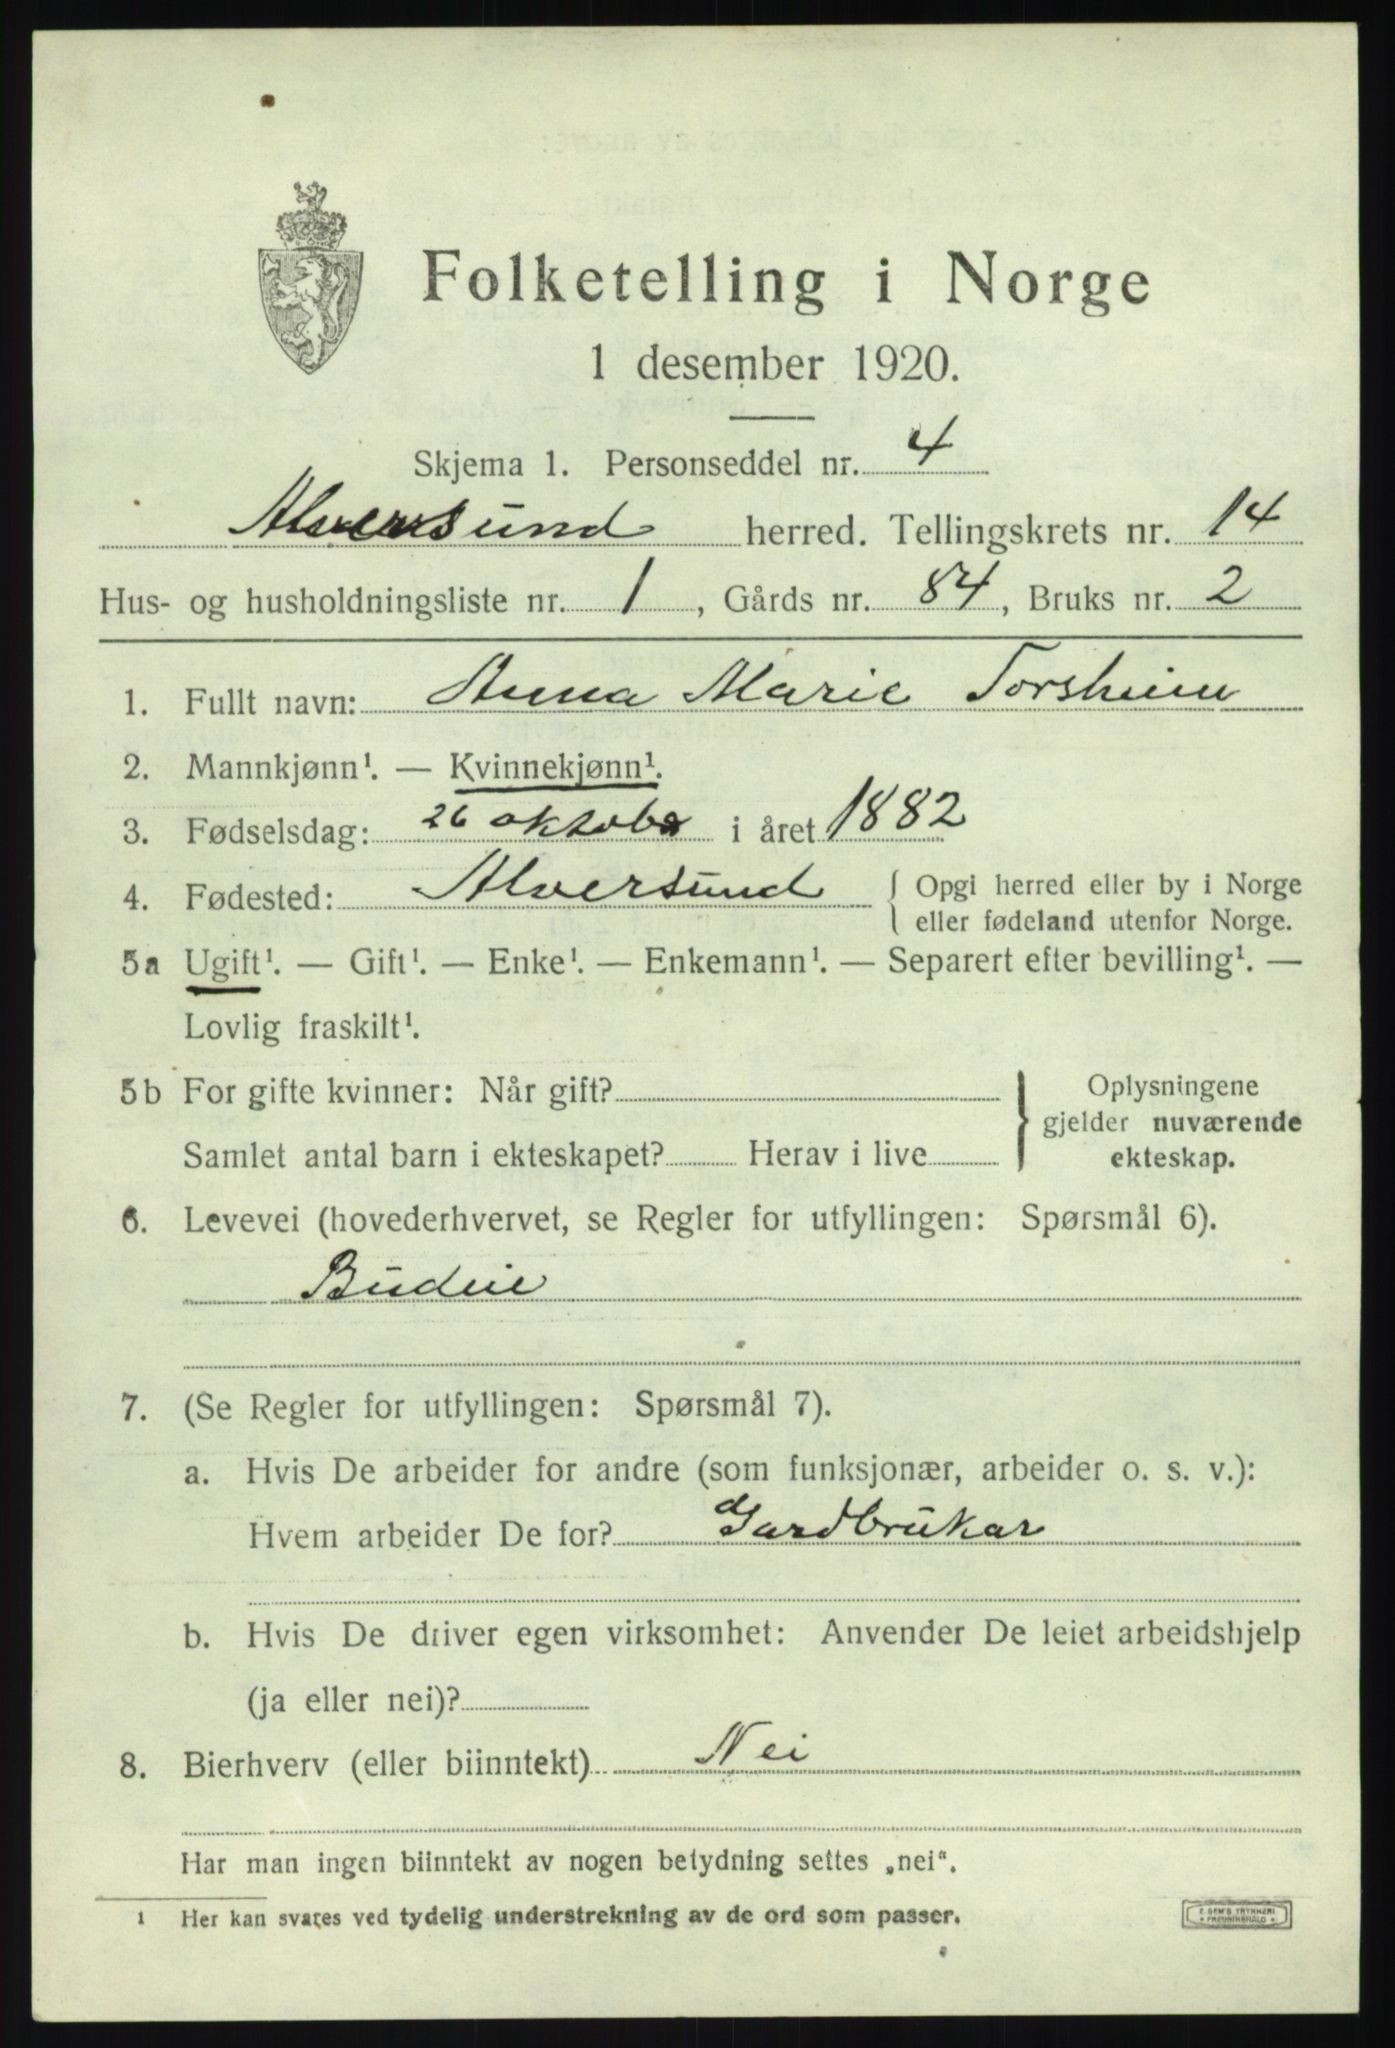 Folketelling i Norge
1 desember 1920.
Skjema 1. Personseddel nr. 4
Alversund herred. Tellingskrets nr. 14
Hus- og husholdningsliste nr. 1, Gårds nr. 84, Bruks nr. 2
1. Fullt navn: Anna Marie Torsheim
2. Mannkjønn¹. — Kvinnekjønn¹.
3. Fødselsdag: 26 oktober i året 1882
4. Fødested: Alversund { Opgi herred eller by i Norge
eller fødeland utenfor Norge.
5a Ugift¹. — Gift¹. — Enke¹. — Enkemann¹. — Separert efter bevilling¹. —
Lovlig fraskilt¹.
5b For gifte kvinner: Når gift? } Oplysningene
gjelder nuværende
Samlet antal barn i ekteskapet? Herav i live ekteskap.
6. Levevei (hovederhvervet, se Regler for utfyllingen: Spørsmål 6).
Budeie
7. (Se Regler for utfyllingen: Spørsmål 7).
a. Hvis De arbeider for andre (som funksjonær, arbeider o. s. v.):
Hvem arbeider De for? Gardbrukar
b. Hvis De driver egen virksomhet: Anvender De leiet arbeidshjelp
(ja eller nei)?
8. Bierhverv (eller biinntekt) Nei
Har man ingen biinntekt av nogen betydning settes „nei“.
¹ Her kan svares ved tydelig understrekning av de ord som passer.